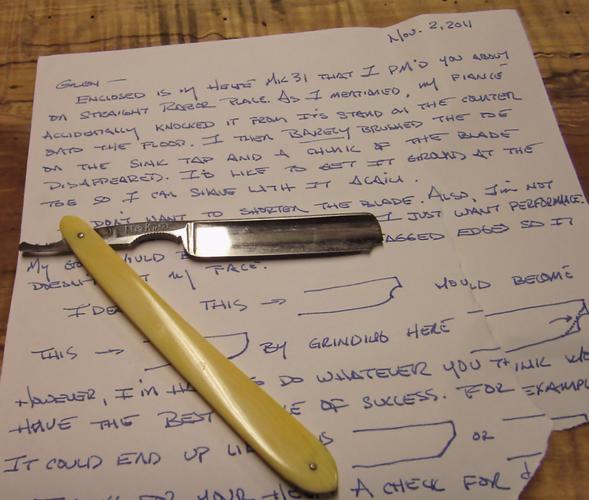 Nov. 2, 2011
GLEN —
ENCLOSED IS MY HENKE MK 31 THAT I PM'D YOU ABOUT
ON STRAIGHT RAZOR PLACE. AS I MENTIONED, MY FIANCE
ACCIDENTALLY KNOCKED IT FROM ITS STAND ON THE COUNTER
ONTO THE FLOOR. I THEN BARELY BRUSHED THE TOE
ON THE SINK TAP AND A CHUNK OF THE BLADE
DISAPPEARED. I'D LIKE TO GET IT GROUND AT THE
TOE SO I CAN SHAVE WITH IT AGAIN.
DON'T WANT TO SHORTEN THE BLADE. ALSO, I'M NOT
I JUST WANT PERFORMANCE.
MY
JAGGED EDGES SO IT
DOESN'T MY FACE.
THIS → WOULD BECOME
THIS → BY GRINDING HERE
HOWEVER, I'M DO WHATEVER YOU THINK
HAVE THE BEST OF SUCCESS. FOR EXAMPLE
IT COULD END UP OR
FOR YOUR A CHECK FOR